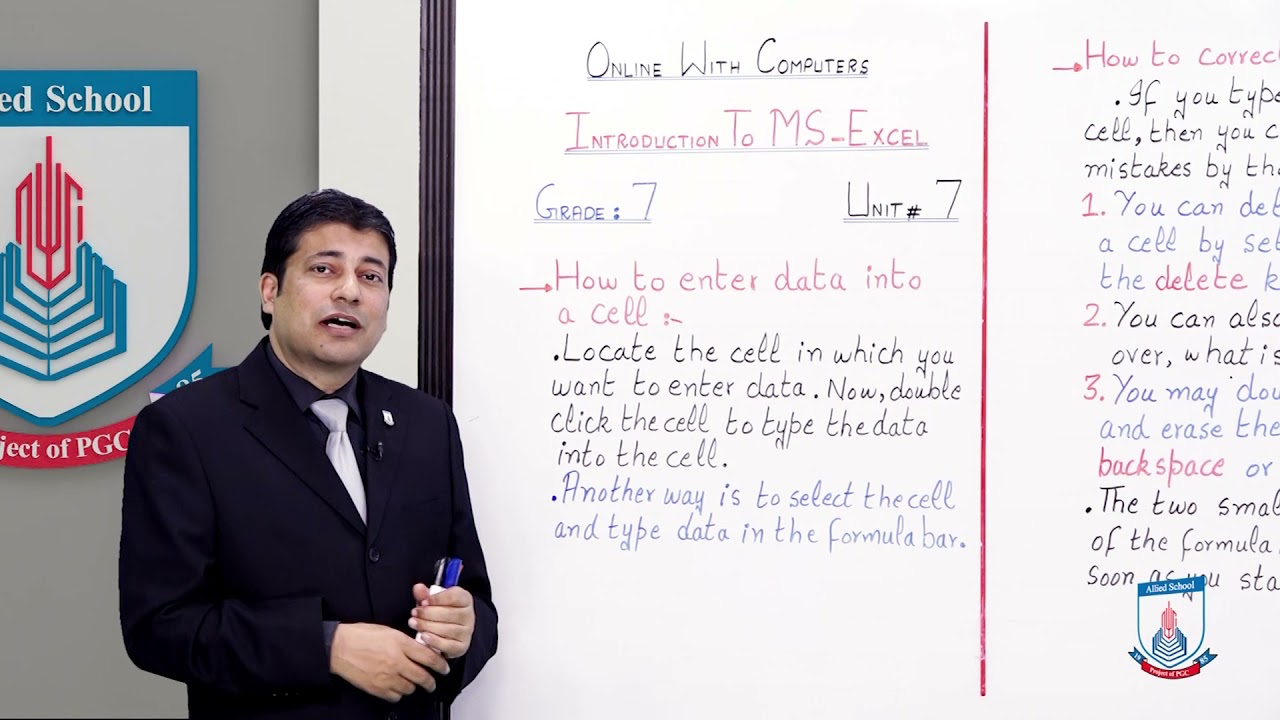 ed School
ject of PGC
Online With Computers
Introduction To MS-Excel
Grade: 7
Unit# 7
How to enter data into
a cell :-
.Locate the cell in which you
want to enter data. Now, double
click the cell to type the data
into the cell.
.Another way is to select the cell
and type data in the formula bar.
How to correc
.If you type
cell, then you c
mistakes by th
1. You can del
a cell by sel
the delete k
2. You can also
over, what is
3. You may dou
and erase the
backspace or
.The two smal
of the formula
soon as you sta
Allied School
19 85
Project of PGC